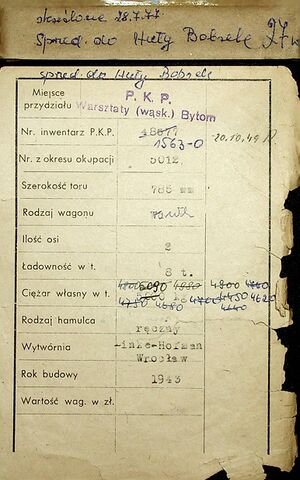 skreślone 28.7.77
Sprzed. do Huty Bobrek 27
sprzed. do Huty Bobrek
Miejsce przydziału P. K. P.
Warsztaty (wąsk.) Bytom
Nr. inwentarz P.K.P. 1563-0 20.10.49
Nr. z okresu okupacji 5012
Szerokość toru 785 mm
Rodzaj wagonu
Ilość osi 2
Ładowność w t. 8 t.
Ciężar własny w t. 4900 4760
4750 4680 4700 4450 4620
4440
Rodzaj hamulca ręczny
Wytwórnia -inke-Hofman
Wrocław
Rok budowy 1943
Wartość wag. w zł.